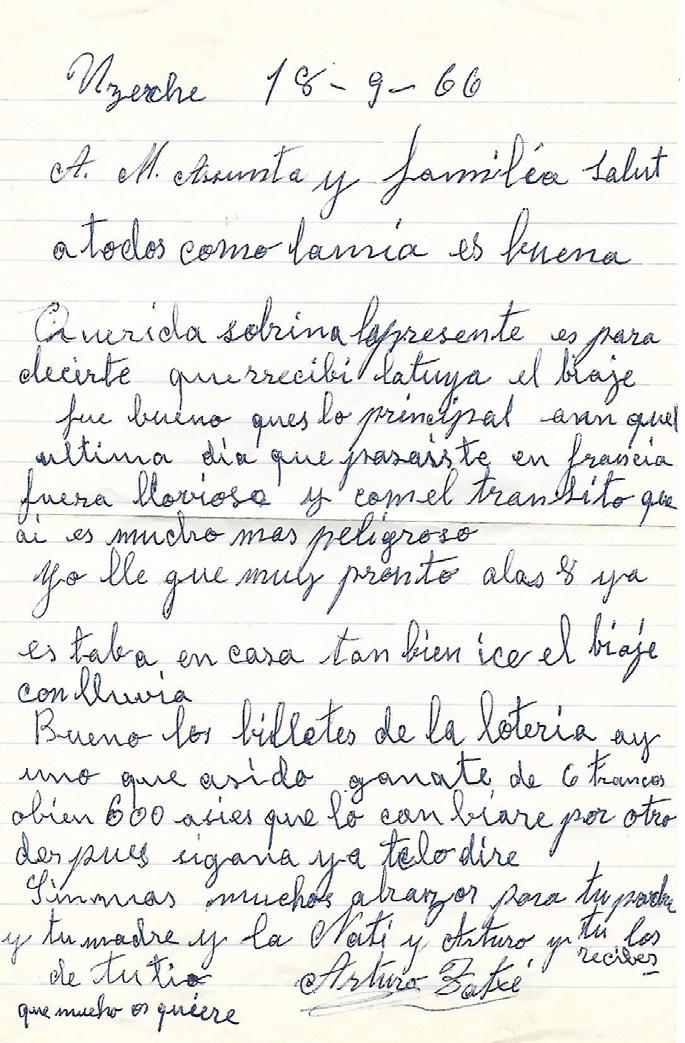 Uzerche 18-9-66
A. M. Assunta y família Salut
a todos como lamia es buena
Querida sobrina la presente es para
decirte querrecibi latuya el biaje
fue bueno ques lo prinçipal aun quel
ultimo día que pasaiste en francia
fuera llovioso y comel transito que
ai es mucho mas peligroso
Yo lle gue muy pronto alas 8 ya
es taba en casa tan bien ice el biaje
con lluvia
Bueno los billetes de la loteria ay
uno que asido ganate de 6 francos
obien 600 asies que lo can biare por otro
des pues sigana ya telo dire
Sinmas muchos abrazos para tu padre
y tu madre y la Nati y Arturo y tu los
recibes
de tu tio Arturo
que mucho os quiere